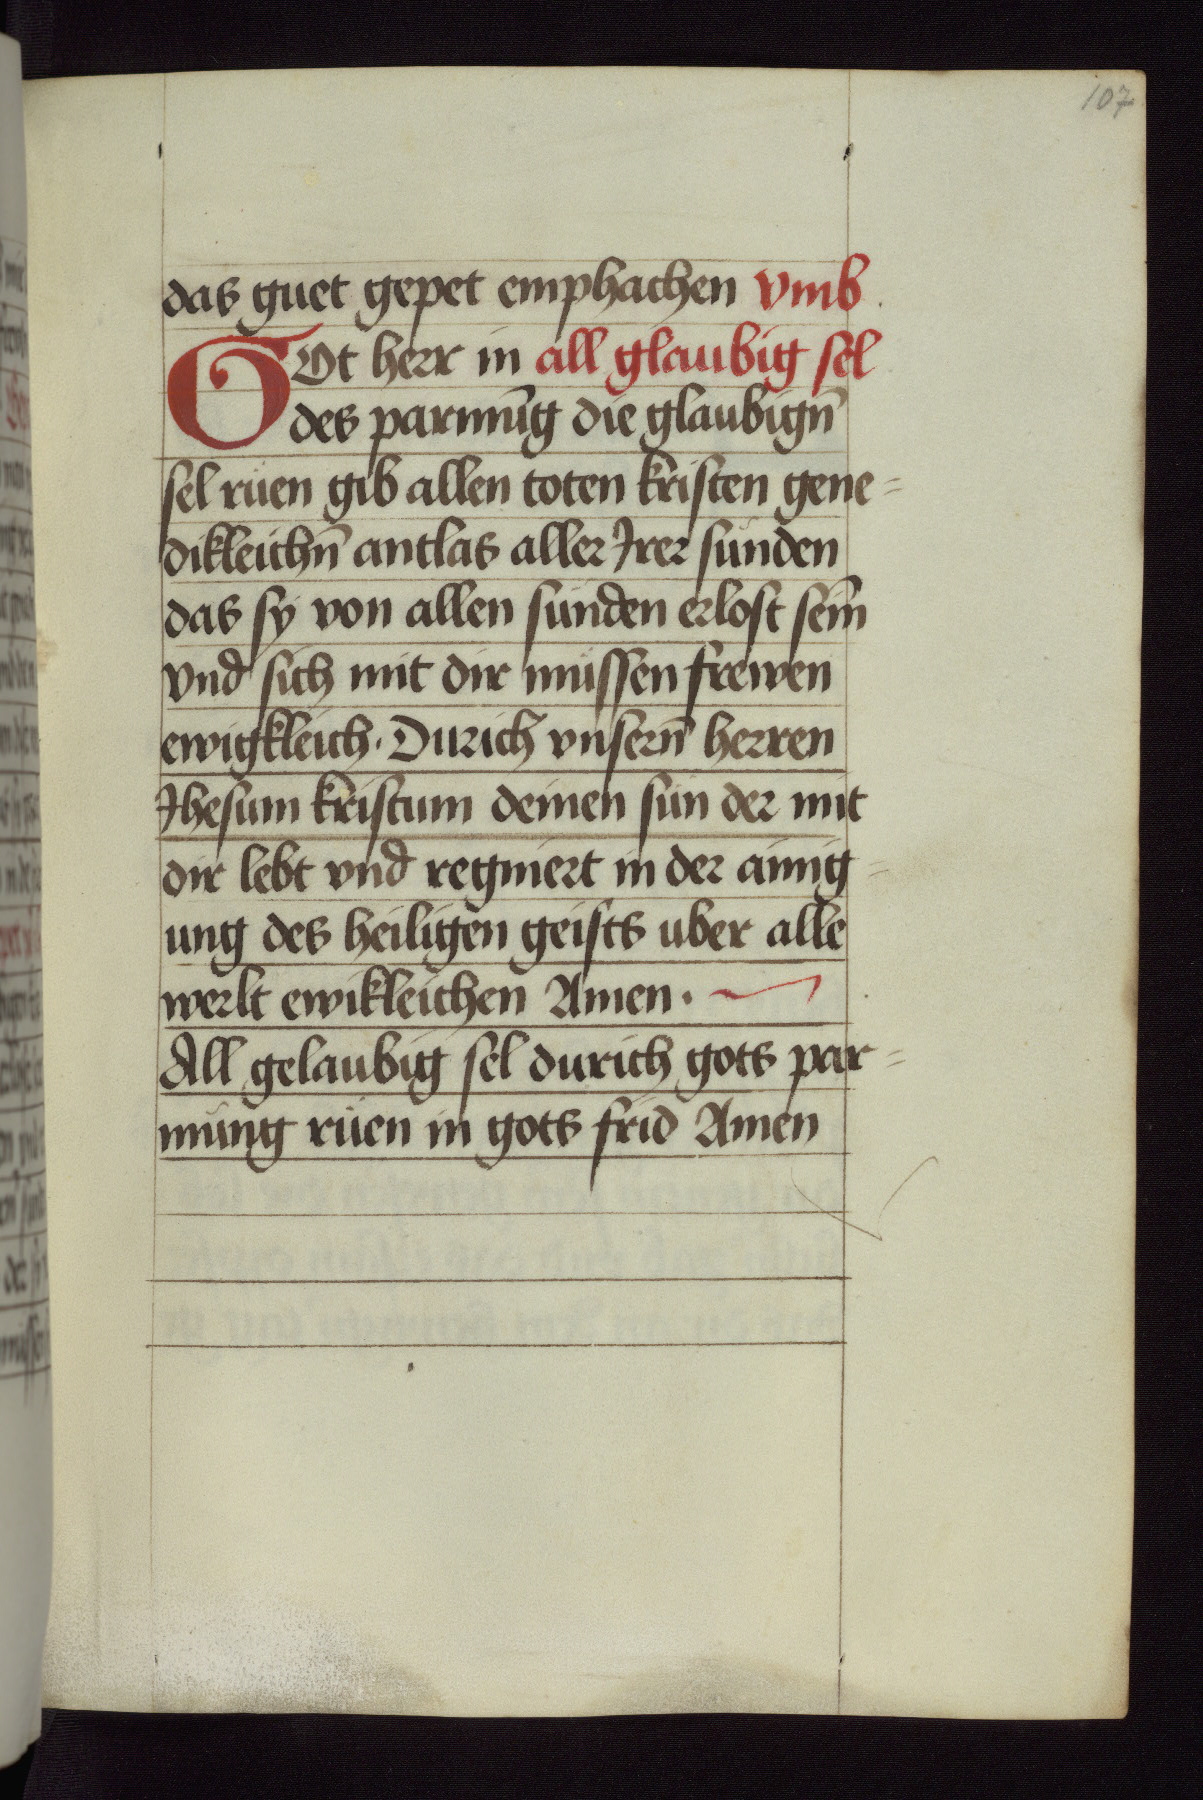 107
das guet gepet emphachen vmb
GOt herr in all glaubig sel
des parmūg die glaubigñ
sel rüen gib allen toten kristen gene=
dikleichñ antlas aller Irer sünden
das sy von allen sünden erlost sein
vnd sich mit dir müssen frewen
ewigkleich. Durich vnserñ herren
Jhesum kristum deinen sün der mit
dir lebt vnd regniert in der ainig=
ung des heiligen geists uber alle
werlt ewikleichen Amen.
All gelaubig sel durich gots par=
mung rüen in gots frid Amen